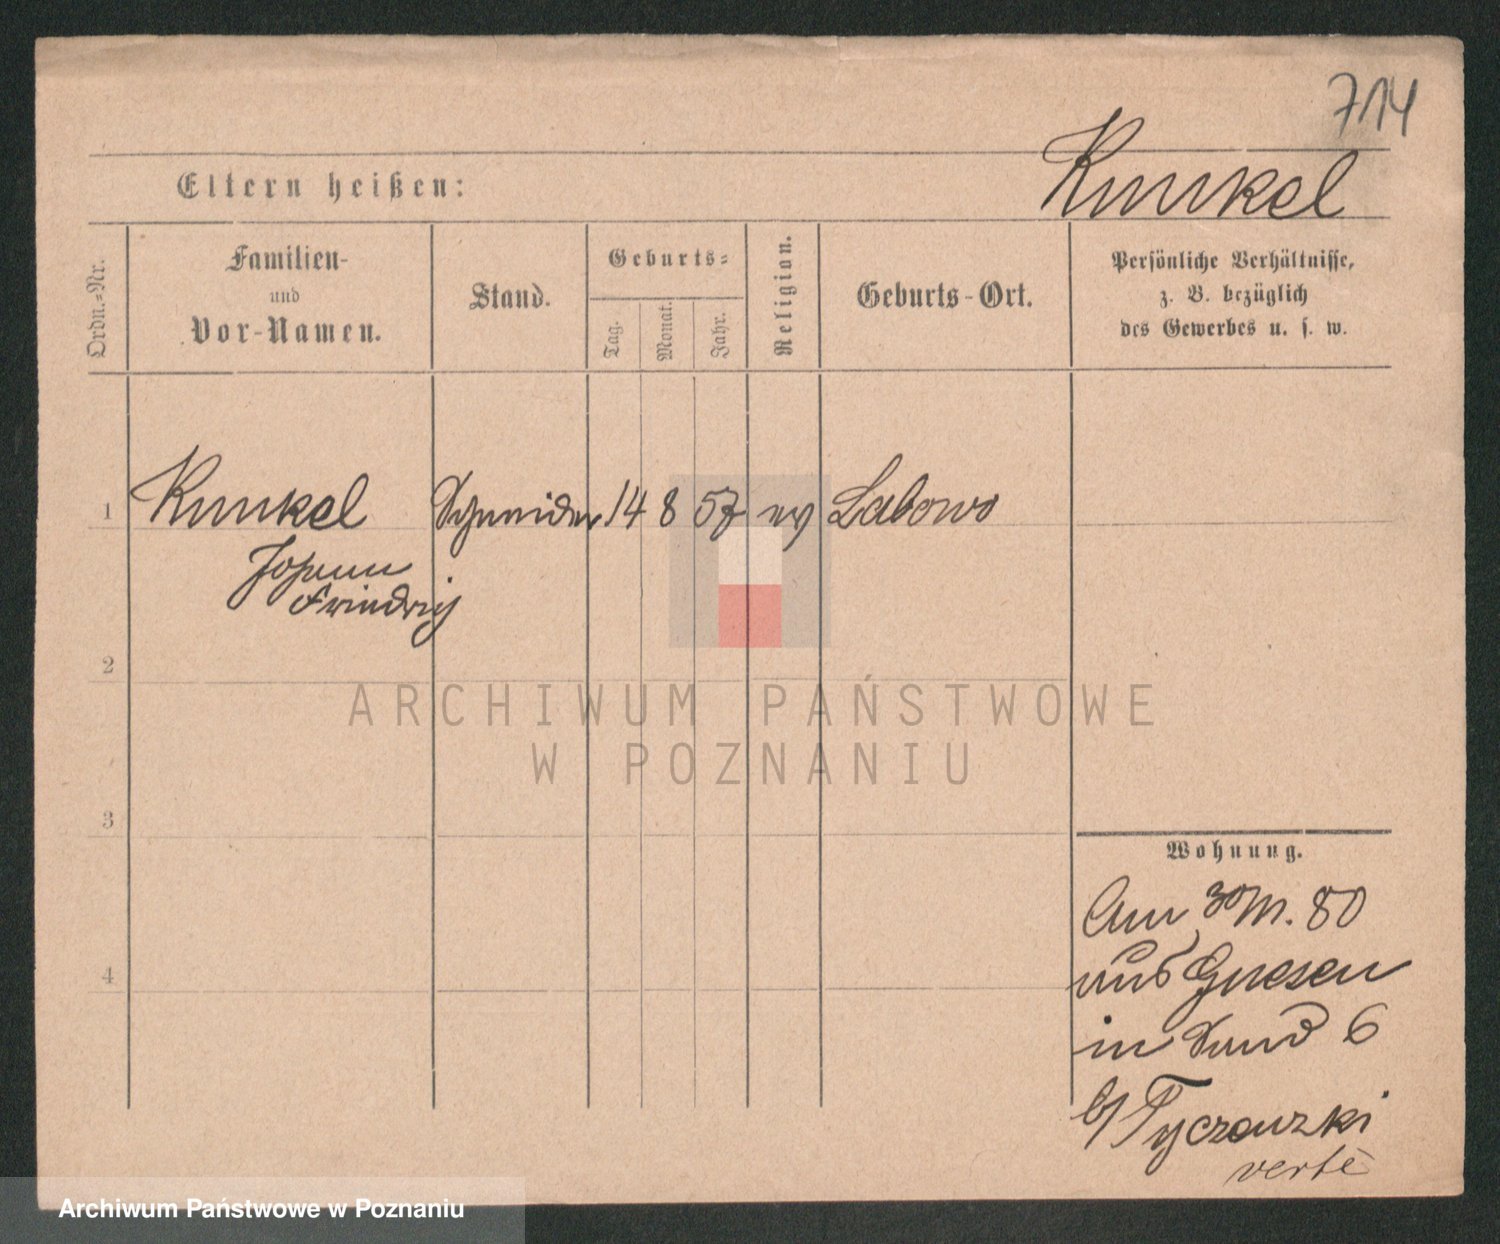 714
Kunkel
Eltern heißen:
Ordn.=Nr.
Familien-
und
Vor-Namen.
Stand.
Geburts=
Tag.
Monat.
Jahr.
Religion.
Geburts-Ort.
Persönliche Verhältnisse,
z. B. bezüglich
des Gewerbes u. s. w.
1 Kunkel Schneider 14 8 57 ev Labowo
Johann
Friedrich
2
3
4
ARCHIWUM PAŃSTWOWE
W POZNANIU
Wohnung.
Am 30 M. 80
aus Gnesen
in Sand 6
b/ Tyczauzki
verte
Archiwum Państwowe w Poznaniu